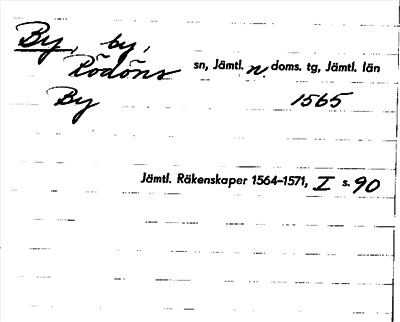 By, by,
Rödöns sn, Jämtl. n. doms. tg, Jämtl. län
By 1565
Jämtl. Räkenskaper 1564–1571, I s. 90